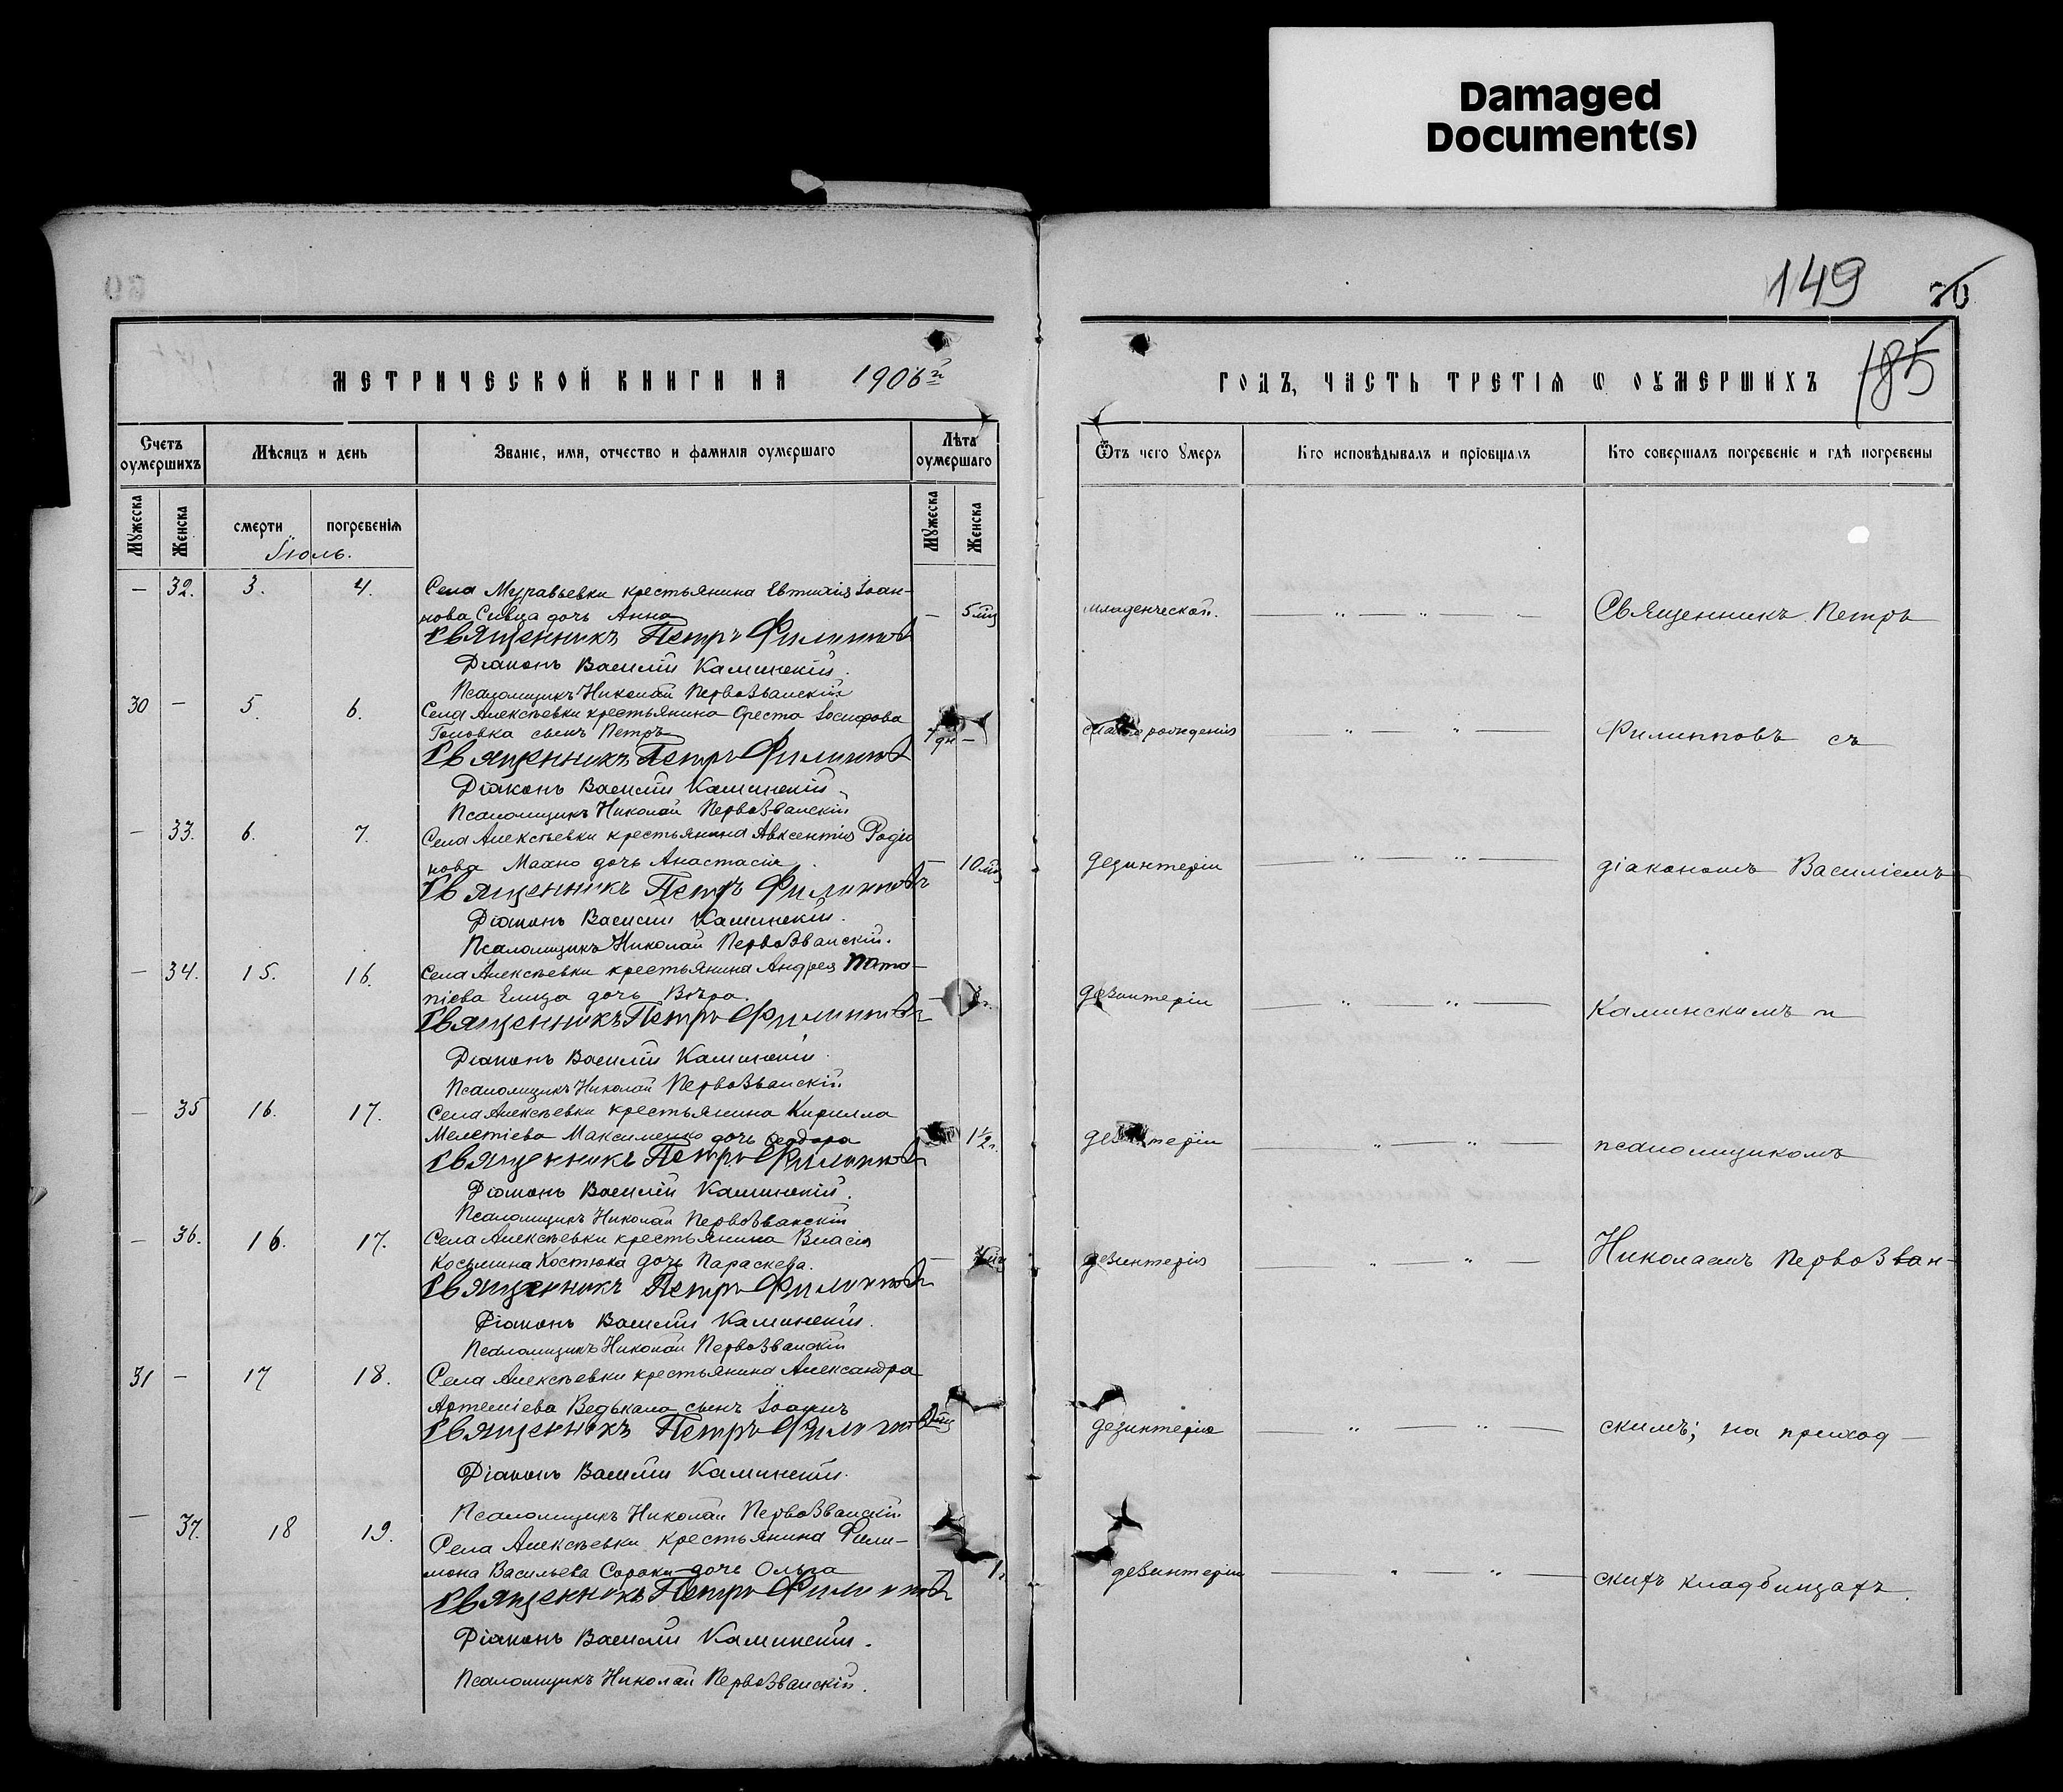 Damaged
Document(s)
149 70
185
МЕТРИЧЕСКОЙ КНИГИ НА 1906 г.
ГОДЪ, ЧАСТЬ ТРЕТІѦ Ѡ ОУМЕРШИХЪ
Счетъ оумершихъ
Мѣсяцъ и день
Званіе, имя, отчество и фамилія оумершаго
Лѣта оумершаго
Ѿтъ чего умеръ
Кто исповѣдывалъ и пріобщалъ
Кто совершалъ погребеніе и гдѣ погребены
Мужеска
Женска
смерти
погребенія
Мужеска
Женска
Іюль.
— 32. 3. 4. Села Муравьевки крестьянина Евтихія Іоан-
нова Сивца дочь Анна — 5 мц младенческой. Священникъ Петръ
Священникъ Петръ Филипповъ
Діаконъ Василій Каминскій.
Псаломщикъ Николай Первозванскій
30 — 5. 6. Села Алексѣевки крестьянина Ореста Іосифова
Головка сынъ Петръ 7 дн — рожденія Филипповъ съ
Священникъ Петръ Филипповъ
Діаконъ Василій Каминскій.
Псаломщикъ Николай Первозванскій
— 33. 6. 7. Села Алексѣевки крестьянина Авксентія Родіо
нова Махно дочь Анастасія. — 10 мц дезинтеріи діакономъ Василіемъ
Священникъ Петръ Филипповъ
Діаконъ Василій Каминскій.
Псаломщикъ Николай Первозванскій.
— 34. 15. 16. Села Алексѣевки крестьянина Андрея Пота-
піева Елица дочь Вѣра. — дезинтеріи Каминскимъ и
Священникъ Петръ Филипповъ
Діаконъ Василій Каминскій.
Псаломщикъ Николай Первозванскій
— 35 16. 17. Села Алексѣевки крестьянина Кирилла
Мелетіева Максименко дочь Ѳеодора 1½ г. дезинтеріи псаломщикомъ
Священникъ Петръ Филипповъ
Діаконъ Василій Каминскій.
Псаломщикъ Николай Первозванскій
— 36. 16. 17. Села Алексѣевки крестьянина Власія
Косьмина Костюка дочь Параскева. — дезинтерія Николаемъ Первозван-
Священникъ Петръ Филипповъ
Діаконъ Василій Каминскій.
Псаломщикъ Николай Первозванскій
31 — 17 18. Села Алексѣевки крестьянина Александра
Артеміева Ведькала сынъ Іоаннъ
Священникъ Петръ Филипповъ дезинтерія скимъ; на приход-
Діаконъ Василій Каминскій.
Псаломщикъ Николай Первозванскій
— 37. 18 19. Села Алексѣевки крестьянина Фили-
мона Васильева Сороки дочь Ольга — 1 г. дезинтеріи скихъ кладбищахъ.
Священникъ Петръ Филипповъ
Діаконъ Василій Каминскій.
Псаломщикъ Николай Первозванскій.